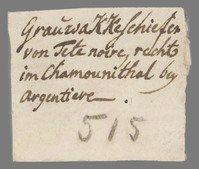 Grauwakkeschiefer
von Tete noire, rechts
im Chamounithal bey
argentiere.
515